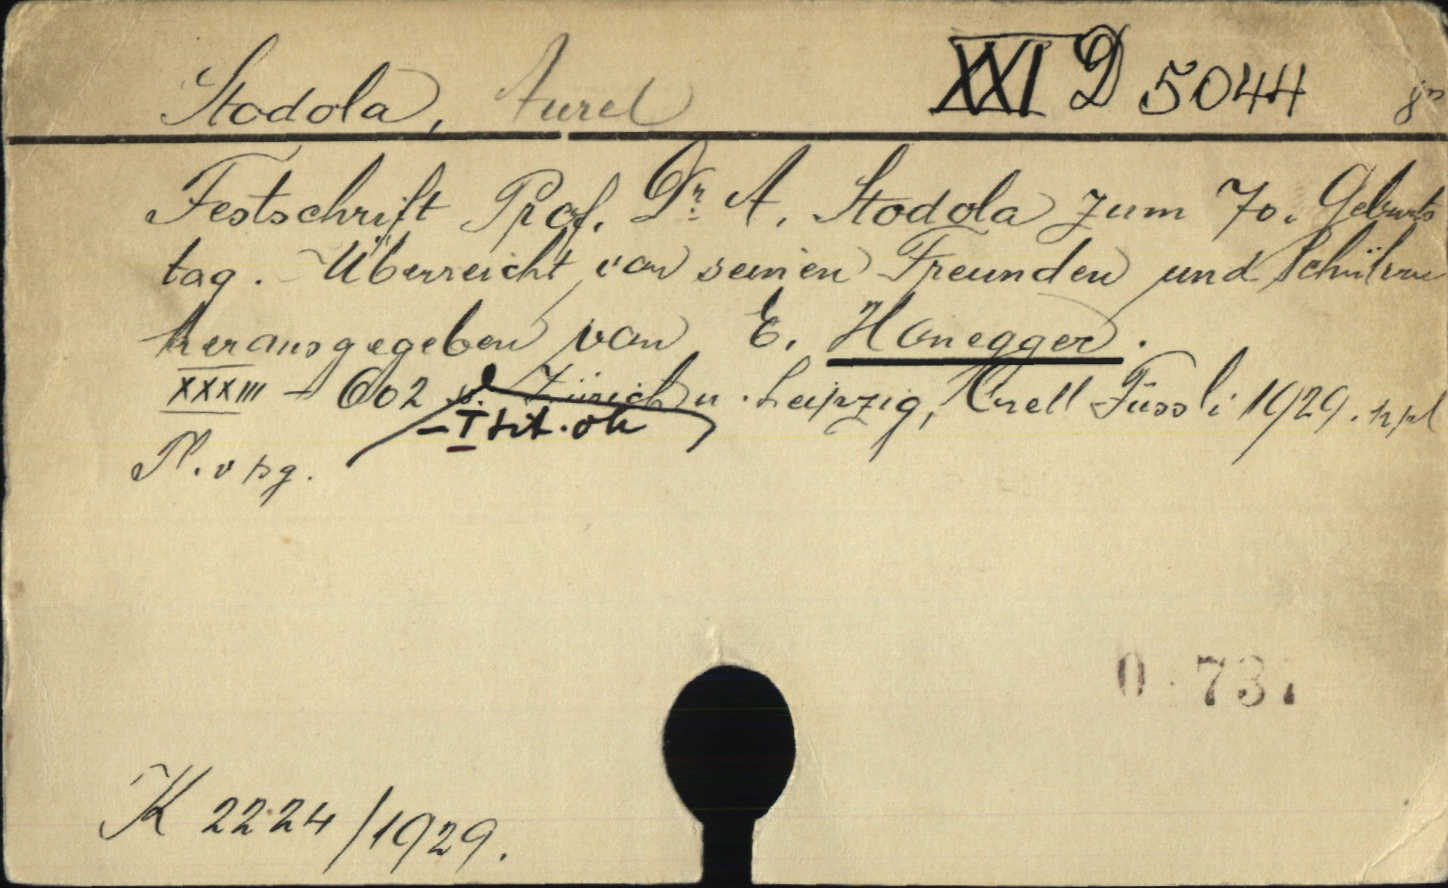 Stodola, Aurel XXI D 5044
Festschrift Prof. Dr. A. Stodola zum 70. Geburts
tag. Überreicht von seinen Freunden und Schülern
herausgegeben von E. Honegger.
XXXIII - 602 s. Zürich u. Leipzig, Orell Füssli 1929.
- I tit. ok
K 2224/1929.